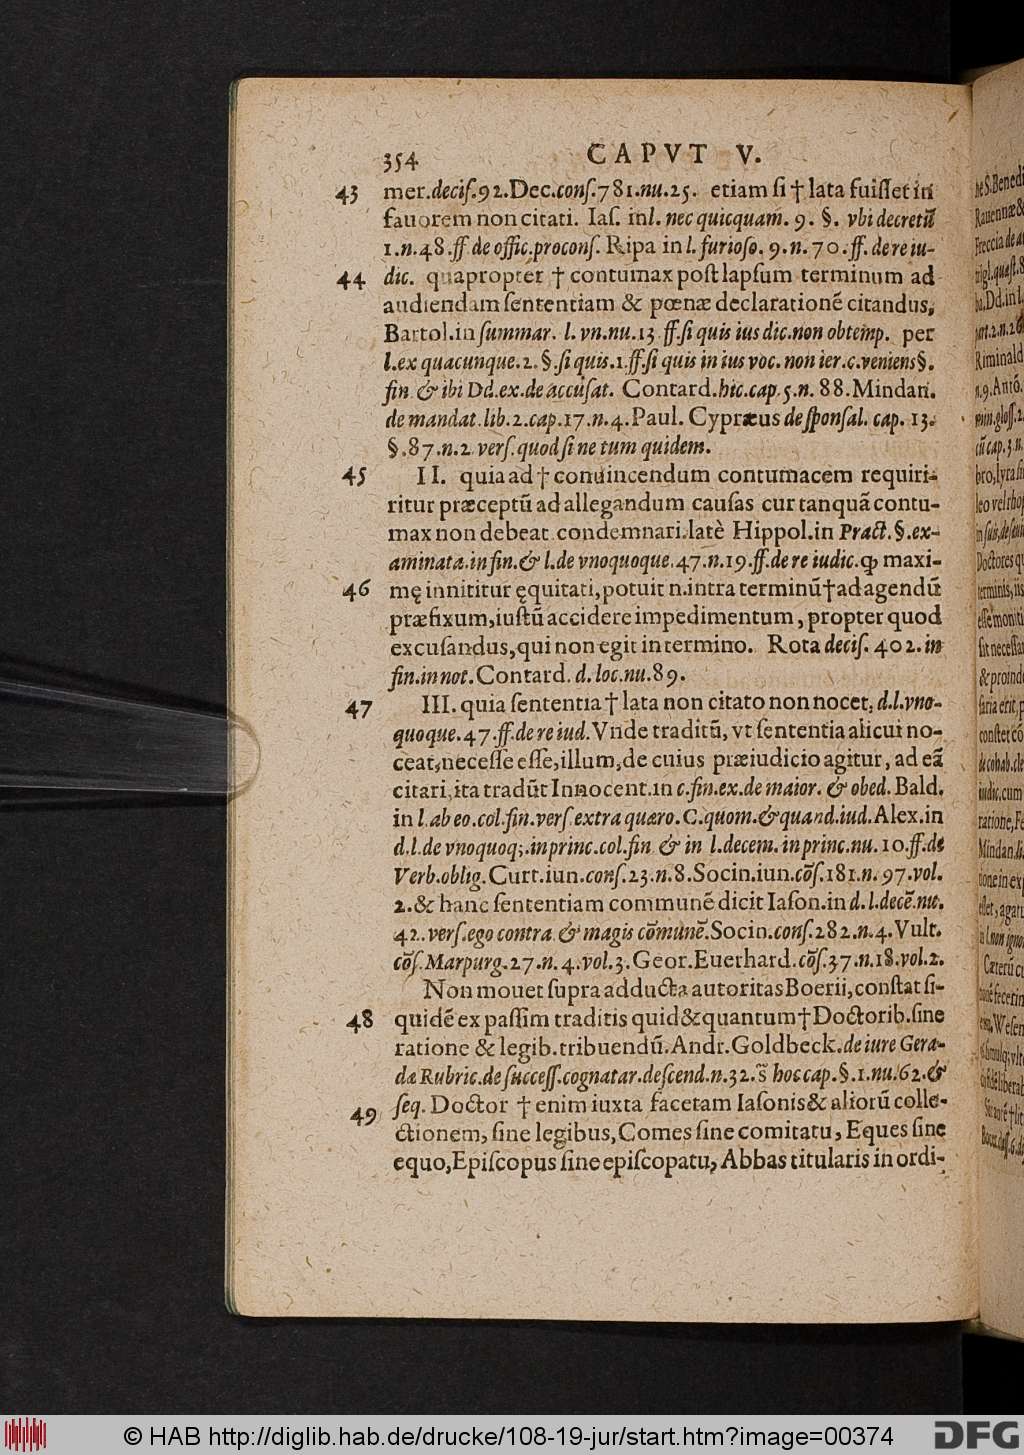 354 CAPVT V.
43 mer.deciſ.92.Dec.conſ.781.nu.25. etiam ſi † lata fuiſſet in
fauorem non citati. Iaſ. in l. nec quicquam. 9. §. vbi decretũ
1.n.48.ff de offic.proconſ. Ripa in l. furioſo. 9.n. 70.ff. de re iu-
44 dic. quapropter † contumax poſt lapſum terminum ad
audiendam ſententiam & pœnæ declarationẽ citandus,
Bartol.in ſummar. l. vn.nu.13 ff.ſi quis ius dic.non obtemp. per
l.ex quacunque.2.§.ſi quis.1.ff.ſi quis in ius voc. non ier.c.veniens§.
fin & ibi Dd.ex.de accuſat. Contard.hic.cap.5.n. 88.Mindan.
de mandat.lib.2.cap.17.n.4.Paul. Cypræus de ſponſal. cap. 13.
§.87.n.2 verſ.quod ſi ne tum quidem.
45 II. quia ad † conuincendum contumacem requiri-
ritur præceptũ ad allegandum cauſas cur tanquã contu-
max non debeat condemnari.latè Hippol.in Pract.§.ex-
aminata.in fin.& l.de vnoquoque.47.n.19.ff.de re iudic.ꝙ maxi-
46 mę innititur ęquitati,potuit n.intra terminũ†ad agendũ
præfixum,iuſtũ accidere impedimentum, propter quod
excuſandus,qui non egit in termino. Rota deciſ. 402.in
fin.in not.Contard. d.loc.nu.89.
47 III. quia ſententia † lata non citato non nocet, d.l.vno-
quoque.47.ff.de re iud.Vnde traditũ, vt ſententia alicui no-
ceat,neceſſe eſſe,illum,de cuius præiudicio agitur, ad eã
citari,ita tradũt Innocent.in c.fin.ex.de maior. & obed. Bald.
in l.ab eo.col.fin.verſ.extra quæro.C.quom.&quand.iud.Alex.in
d.l.de vnoquoq;.in princ.col.fin & in l.decem.in princ.nu.10.ff.de
Verb.oblig.Curt.iun.conſ.23.n.8.Socin.iun.cõſ.181.n.97.vol.
2.& hanc ſententiam communẽ dicit Iaſon.in d.l.decẽ.nu.
42.verſ.ego contra & magis cõmunẽ.Socin.conſ.282.n.4.Vult.
cõſ.Marpurg.27.n.4.vol.3.Geor.Euerhard.cõſ.37.n.18.vol.2.
Non mouet ſupra adducta autoritas Boerii,conſtat ſi-
48 quidẽ ex paſſim traditis quid&quantum†Doctorib.ſine
ratione & legib.tribuendũ.Andr.Goldbeck.de iure Gera-
da Rubric.de ſucceſſ.cognatar.deſcend.n.32.ẽ hoc cap.§.1.nu.62.&
49 ſeq. Doctor † enim iuxta facetam Iaſonis & aliorũ colle-
ctionem, ſine legibus,Comes ſine comitatu, Eques ſine
equo,Epiſcopus ſine epiſcopatu, Abbas titularis in ordi-
© HAB http://diglib.hab.de/drucke/108-19-jur/start.htm?image=00374
DFG